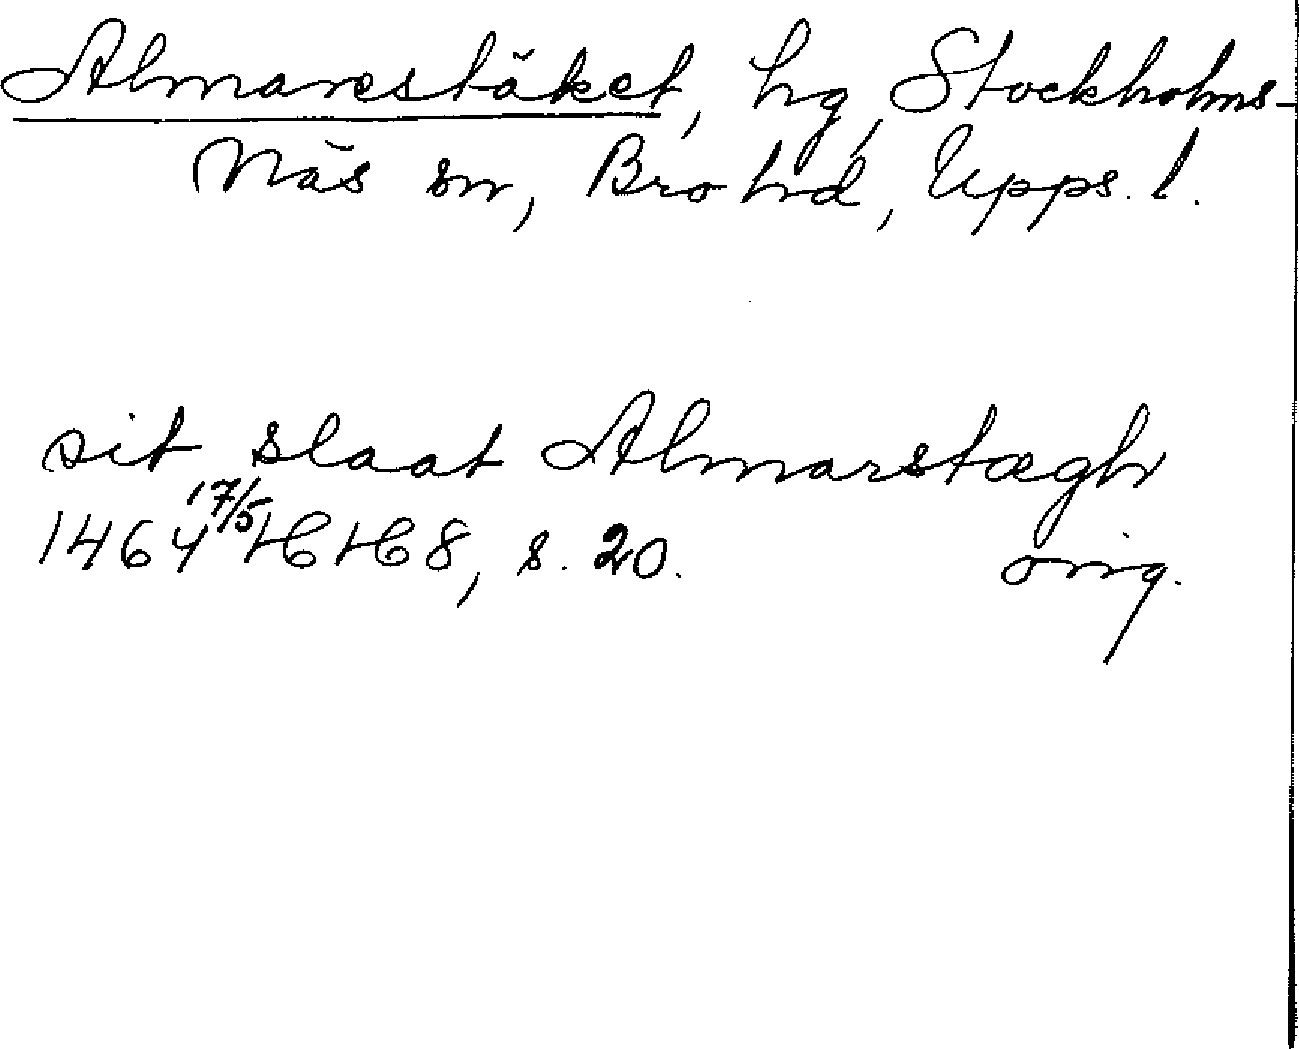 Almarestäket, hg, Stockholms-
Näs sn, Bro hd, Upps. l.
sit slaat Almarstægh
1464 17/5 HH 8, s. 20. orig.